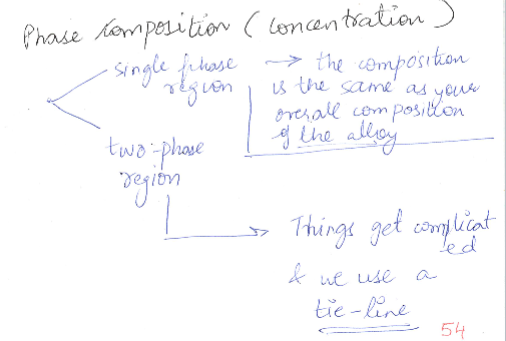 Phase Composition (Concentration)
single phase region → the composition
is the same as your
overall composition
of the alloy
two-phase
region
Things get complicat
ed
& we use a
tie-line
54